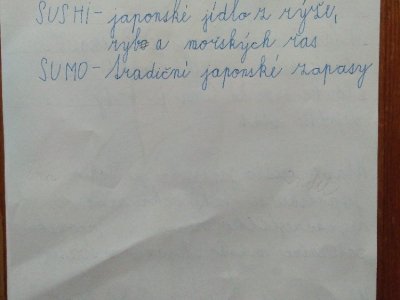 SUSHI - japonské jídlo z rýže,
rybo a mořských ras
SUMO - tradiční japonské zapasy